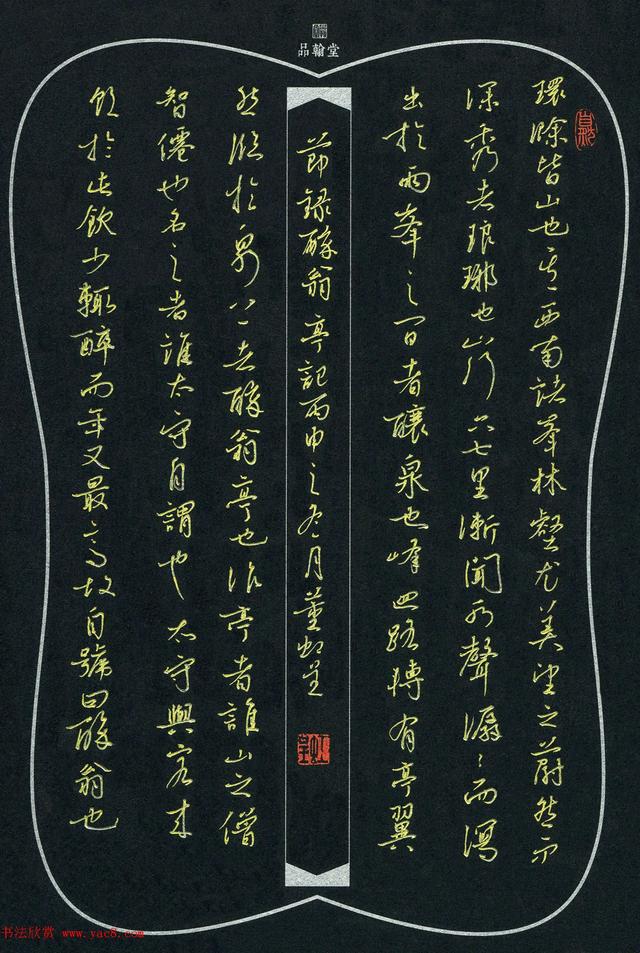 品翰堂
環滁皆山也其西南諸峯林壑尤美望之蔚然而
深秀者琅琊也山行六七里漸聞水聲潺〻而瀉
出於兩峯之間者釀泉也峰迴路轉有亭翼
節錄醉翁亭記丙申之冬月董
然臨於泉上者醉翁亭也作亭者誰山之僧
智僊也名之者誰太守自謂也太守與客來
飲於此飲少輒醉而年又最高故自號曰醉翁也
书法欣赏 www.yac8.com